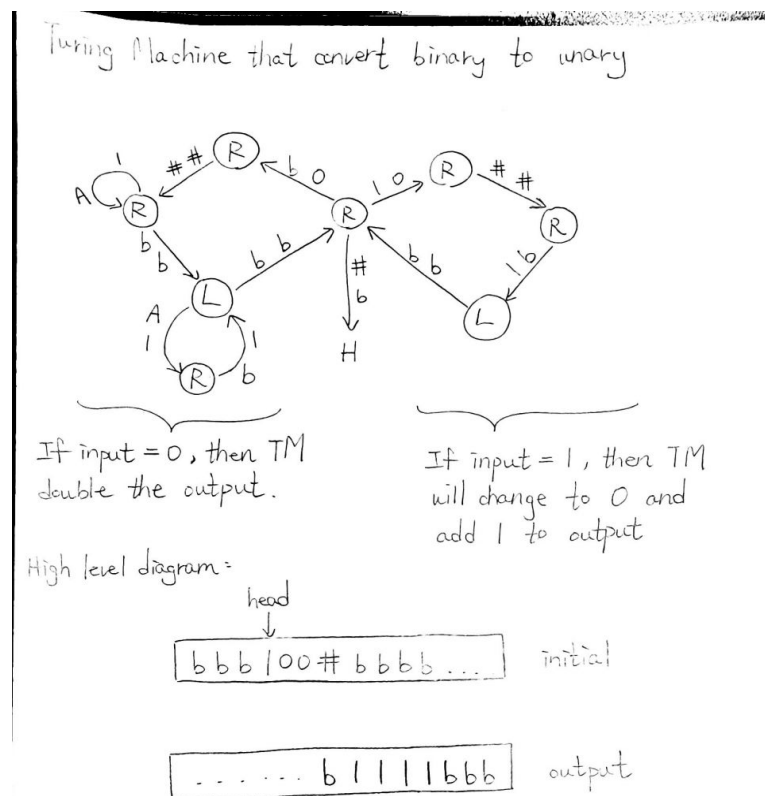 Turing Machine that convert binary to unary
R
1
# #
R
b 0
R
# #
A
R
1 0
R
R
b
b
b b
#
b
b b
1 b
A
1
L
1
H
L
R
b
If input = 0, then TM
double the output.
If input = 1, then TM
will change to 0 and
add 1 to output
High level diagram:
head
b b b 1 0 0 # b b b b ...
initial
. . . . . . b 1 1 1 1 b b b
output